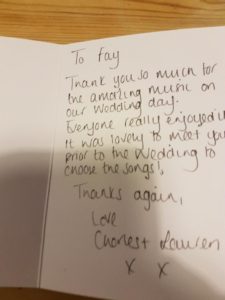 To Fay
Thank you so much for
the amazing music on
our Wedding day.
Everyone really enjoyed it
It was lovely to meet you
prior to the Wedding to
choose the songs!,
Thanks again,
Love
Lauren
x x